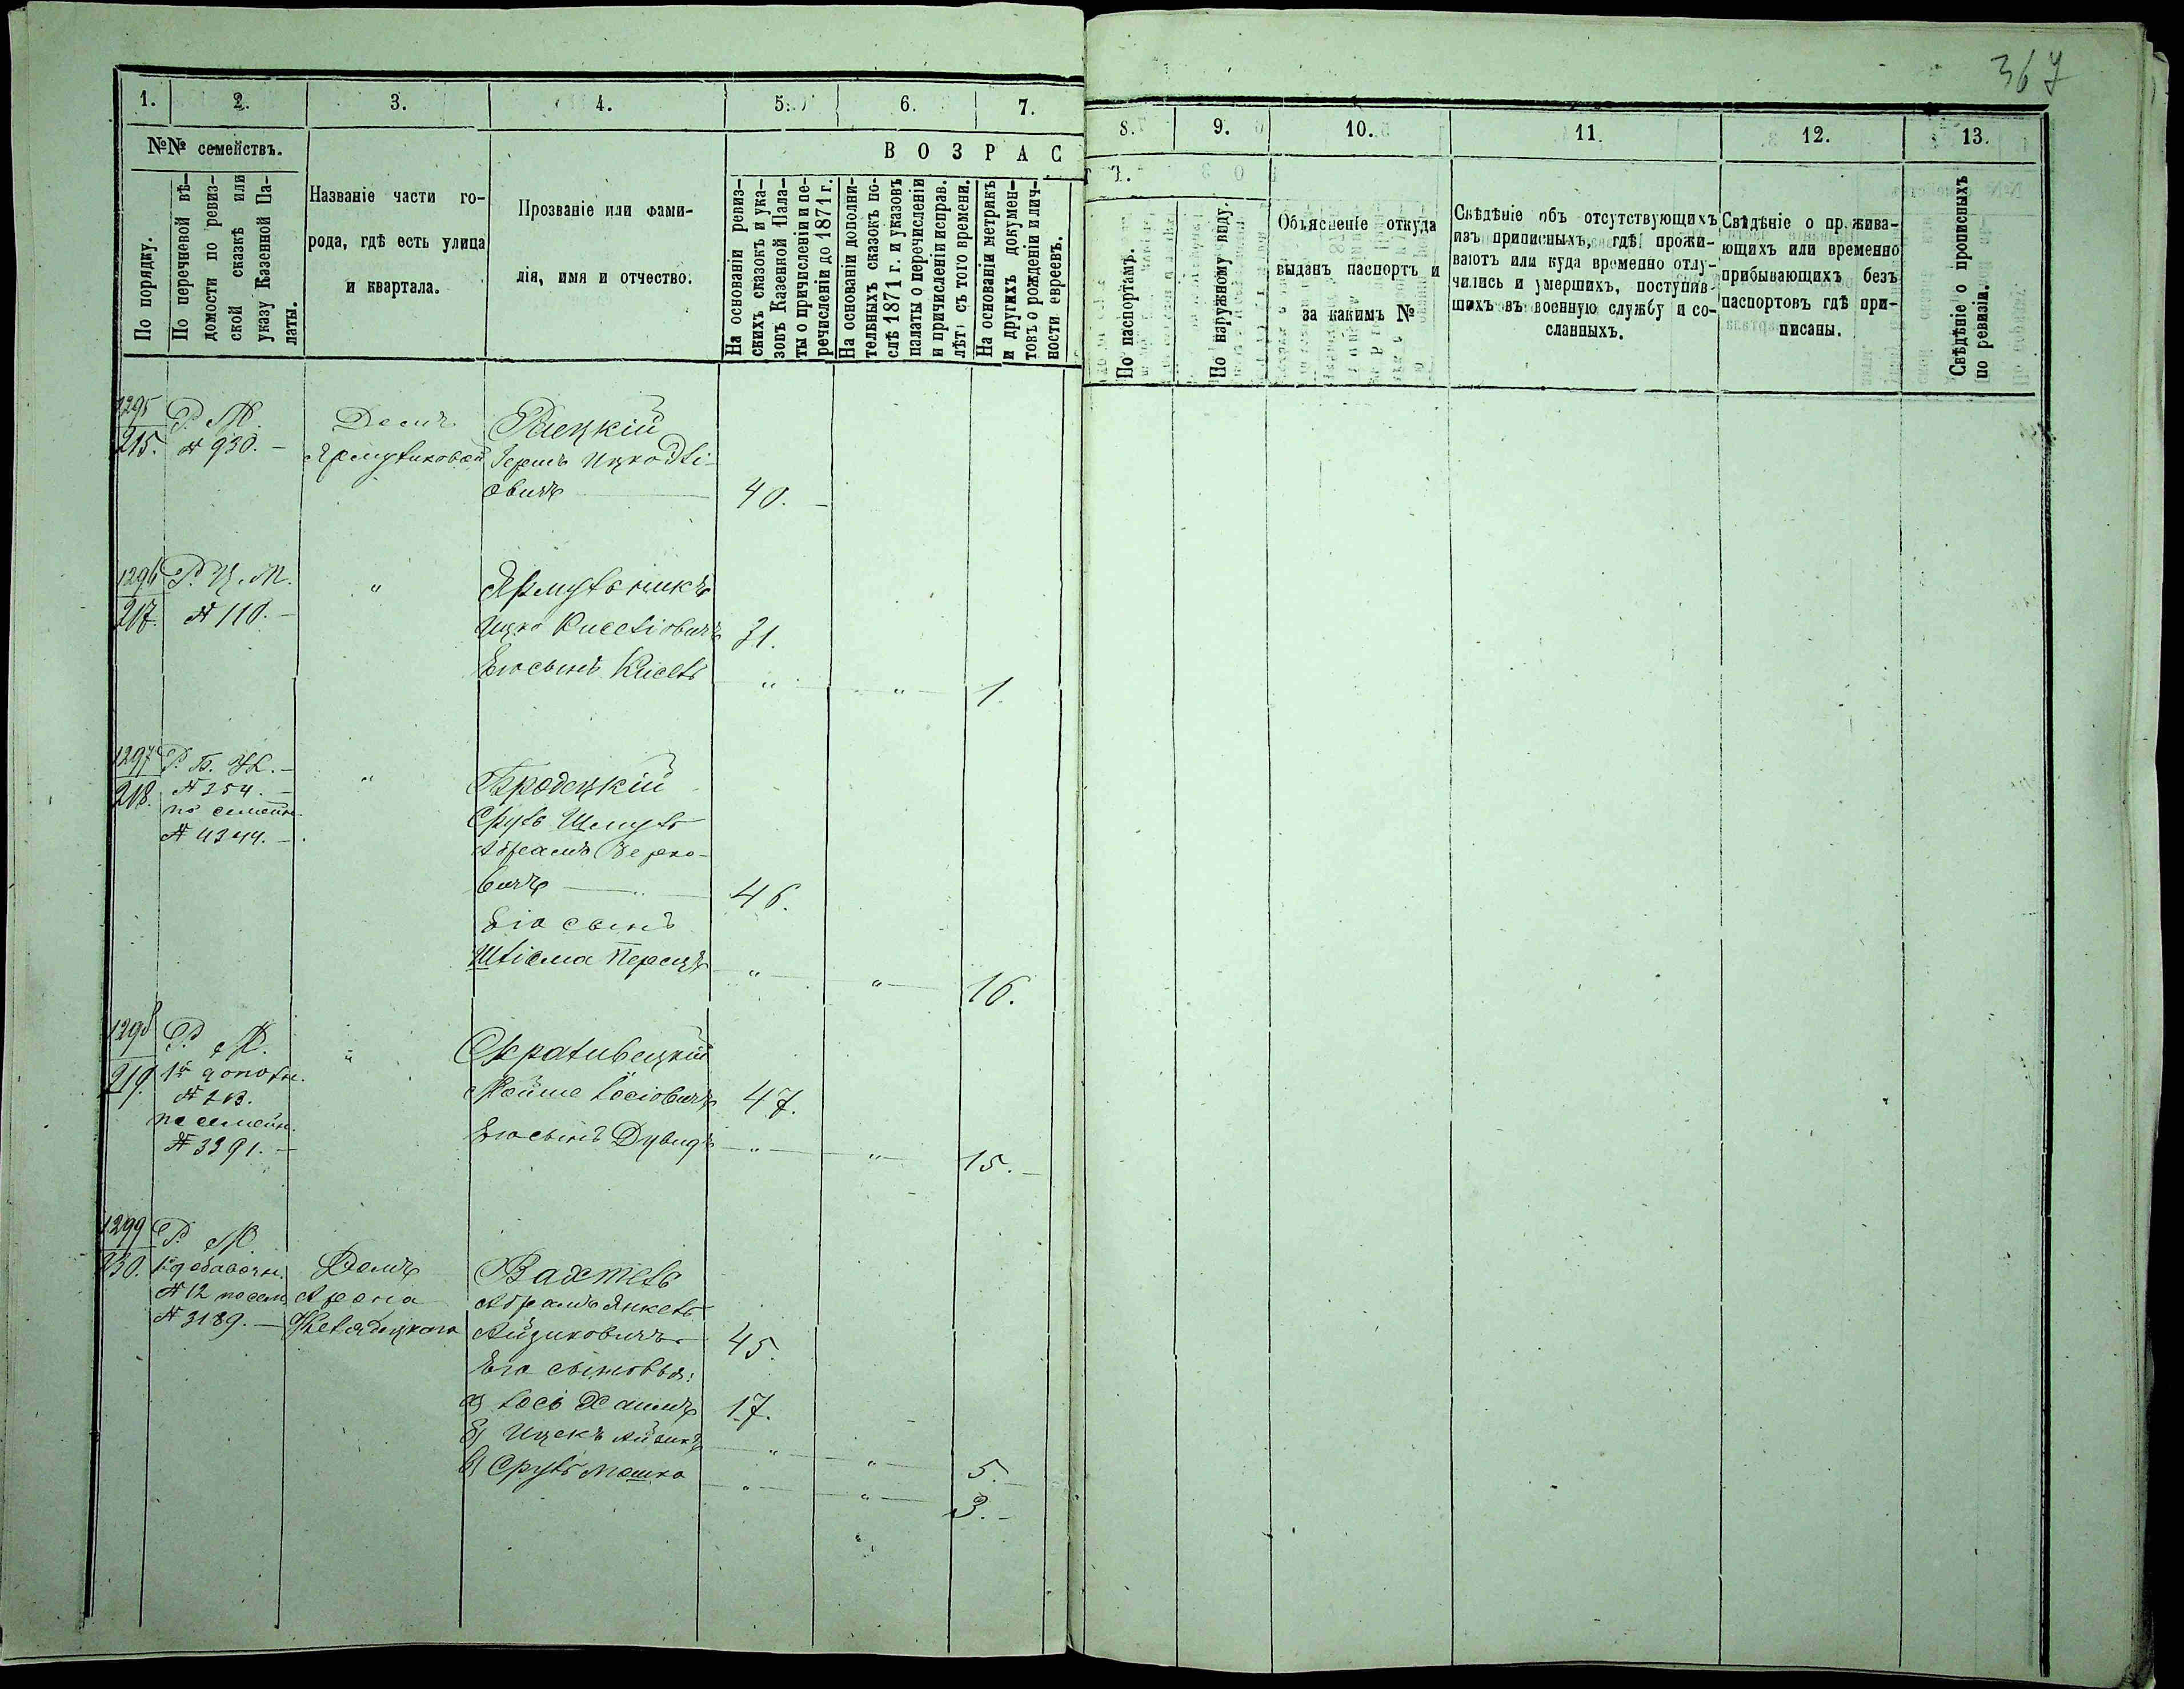 367
1. 2. 3. 4. 5. 6. 7. 8. 9. 10. 11. 12. 13.
№№ семействъ.
ВОЗРАСТ.
По порядку.
По перечневой вѣ-
домости по ревиз-
ской сказкѣ или
указу Казенной Па-
латы.
Названіе части го-
рода, гдѣ есть улица
и квартала.
Прозваніе или фами-
лія, имя и отчество.
На основаніи ревиз-
скихъ сказокъ и ука-
зовъ Казенной Пала-
ты о причисленіи и пе-
речисленіи до 1871 г.
На основаніи дополни-
тельныхъ сказокъ по-
слѣ 1871 г. и указовъ
палаты о перечисленіи
и причисленіи исправ.
лѣтъ съ того времени.
На основаніи метрикъ
и другихъ докумен-
товъ о рожденіи и лич-
ности евреевъ.
По паспортамъ.
По наружному виду.
Объясненіе откуда
выданъ паспортъ и
за какимъ №
Свѣдѣніе объ отсутствующихъ
изъ приписныхъ, гдѣ прожи-
ваютъ или куда временно отлу-
чились и умершихъ, поступив-
шихъ въ военную службу и со-
сланныхъ.
Свѣдѣніе о прожива-
ющихъ или временно
прибывающихъ безъ
паспортовъ гдѣ при-
писаны.
Свѣдѣніе о прописныхъ
по ревизіи.
1295 Р. М. Домъ Раецкій
215. № 930. – Ярмульниковой Гершъ Ицко Дѣі-
овичъ 40. –
1296 Р. Ц. М. " Ярмульникъ
217. № 110. –
Ицко Киселіовичъ 31.
Его сынъ Кисель " " 1.
1297 Р. Б. Ж. – " Бродецкій
218. № 354. –
по семейн. Сруль Шмуль
№ 4344. – Абрамъ Берко-
вичъ 46.
Его сынъ
Шліома Перецъ " " 16.
1298 Р. М. " Скраливецкій
219. 1й дополн.
№ 213. Мойше Лосіовичъ 47.
по семейн.
№ 3391. – Его сынъ Дувидъ " " 15. –
1299 Р. М.
230. 1й добавочн. Домъ Вахтель
№ 12 по сем. Арона Абрамъ Янкель
№ 3189. – Айзиковичъ 45.
Его сыновья:
а) Лось Хаимъ 17.
б) Ицекъ Айзикъ " " 5. –
в) Сруль Мошко " " 3. –